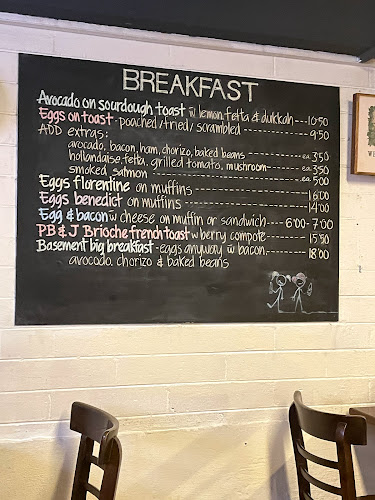 BREAKFAST
Avocado on sourdough toast w lemon, fetta & dukkah --- 10.50
Eggs on toast - poached / fried / scrambled ------------ 9.50
ADD extras:
avocado, bacon, ham, chorizo, baked beans ------------ ea. 3.50
hollandaise, fetta, grilled tomato, mushroom ------ ea. 3.50
smoked salmon ------------------------ ea. 5.00
Eggs florentine on muffins ---------------- 16.00
Eggs benedict on muffins ---------------- 14.00
Egg & bacon w cheese on muffin or sandwich ---- 6.00 - 7.00
PB & J Brioche french toast w berry compote ------ 15.50
Basement big breakfast - eggs anyway w bacon, ------ 18.00
avocado, chorizo & baked beans